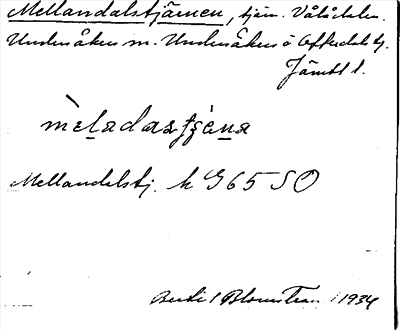 Mellandalstjärnen, tjärn. Vålådalen.
Undersåkers sn. Undersåkers o Offerdals tj.
Jämtl l.
mèladastjèna
Mellandalstj. k G65 SO
Blomstrán 1934